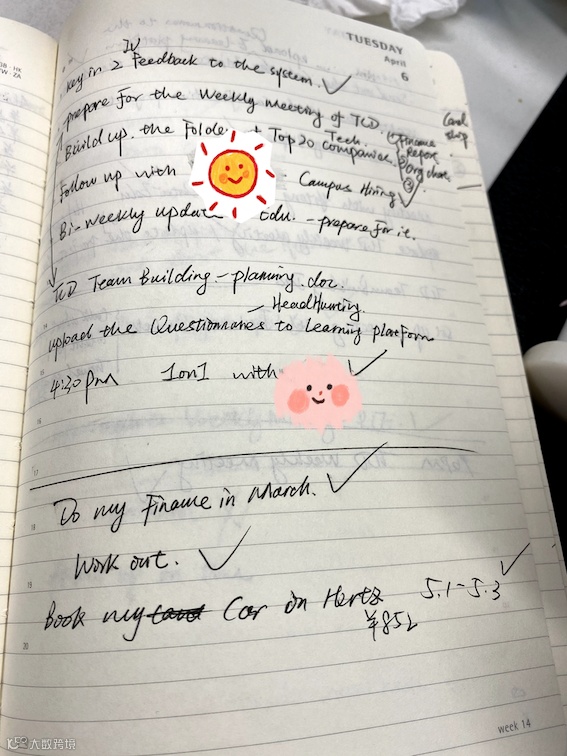 TUESDAY
April
6
IV
key in 2 Feedback to the system. ✓
prepare for the Weekly Meeting of TCD.
Build up the Folde + Top 20 companies. Tech.
① Finance Report.
② Org chat.
③
Follow up with : Campus Hiring ✓
Bi-weekly updat Edu. - prepare for it.
TCD Team Building - planning. doc.
- HeadHunting.
upload the Questionnaires to learning platform
4:30 pm 1on1 with ✓
Do my Finance in March. ✓
Work out. ✓
Book my Car on Hertz 5.1-5.3 ✓
¥852
15
16
17
18
19
20
week 14